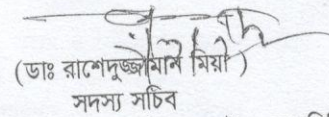 (ডাঃ রাশেদুজ্জামান মিয়া)
সদস্য সচিব